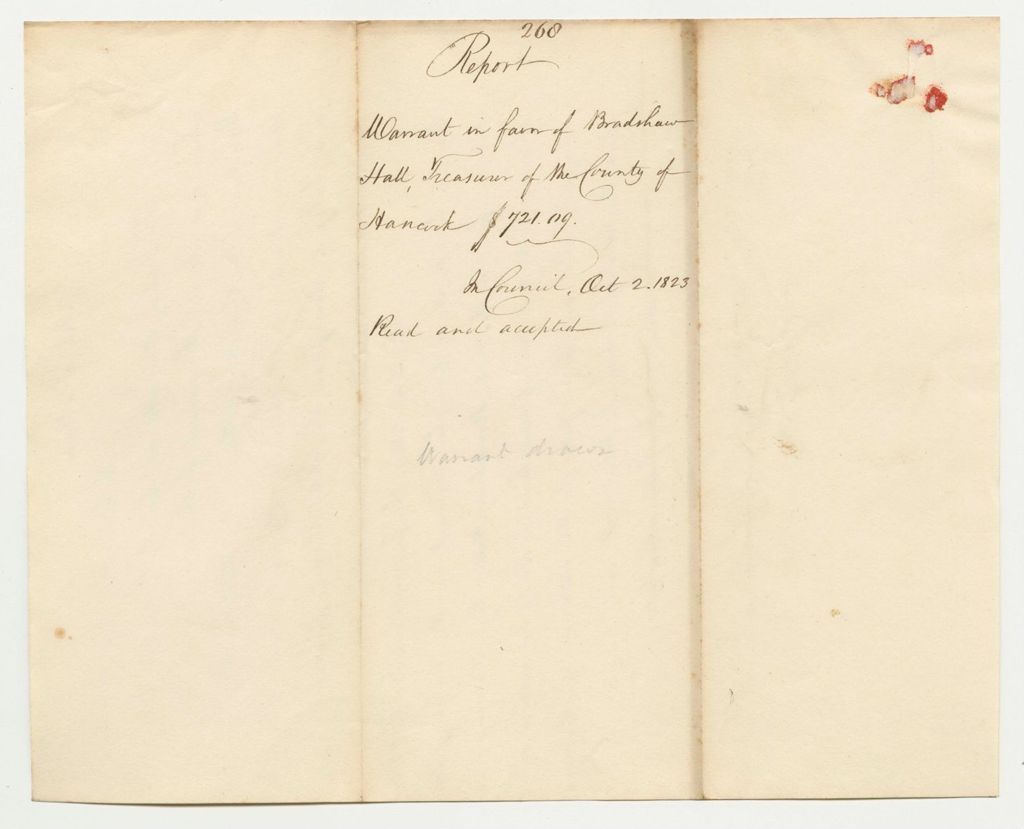 268
Report
Warrant in favor of Bradshaw
Hall, Treasurer of the County of
Hancock $721.09.
In Council, Oct 2. 1823
Read and accepted
Warrant drawn